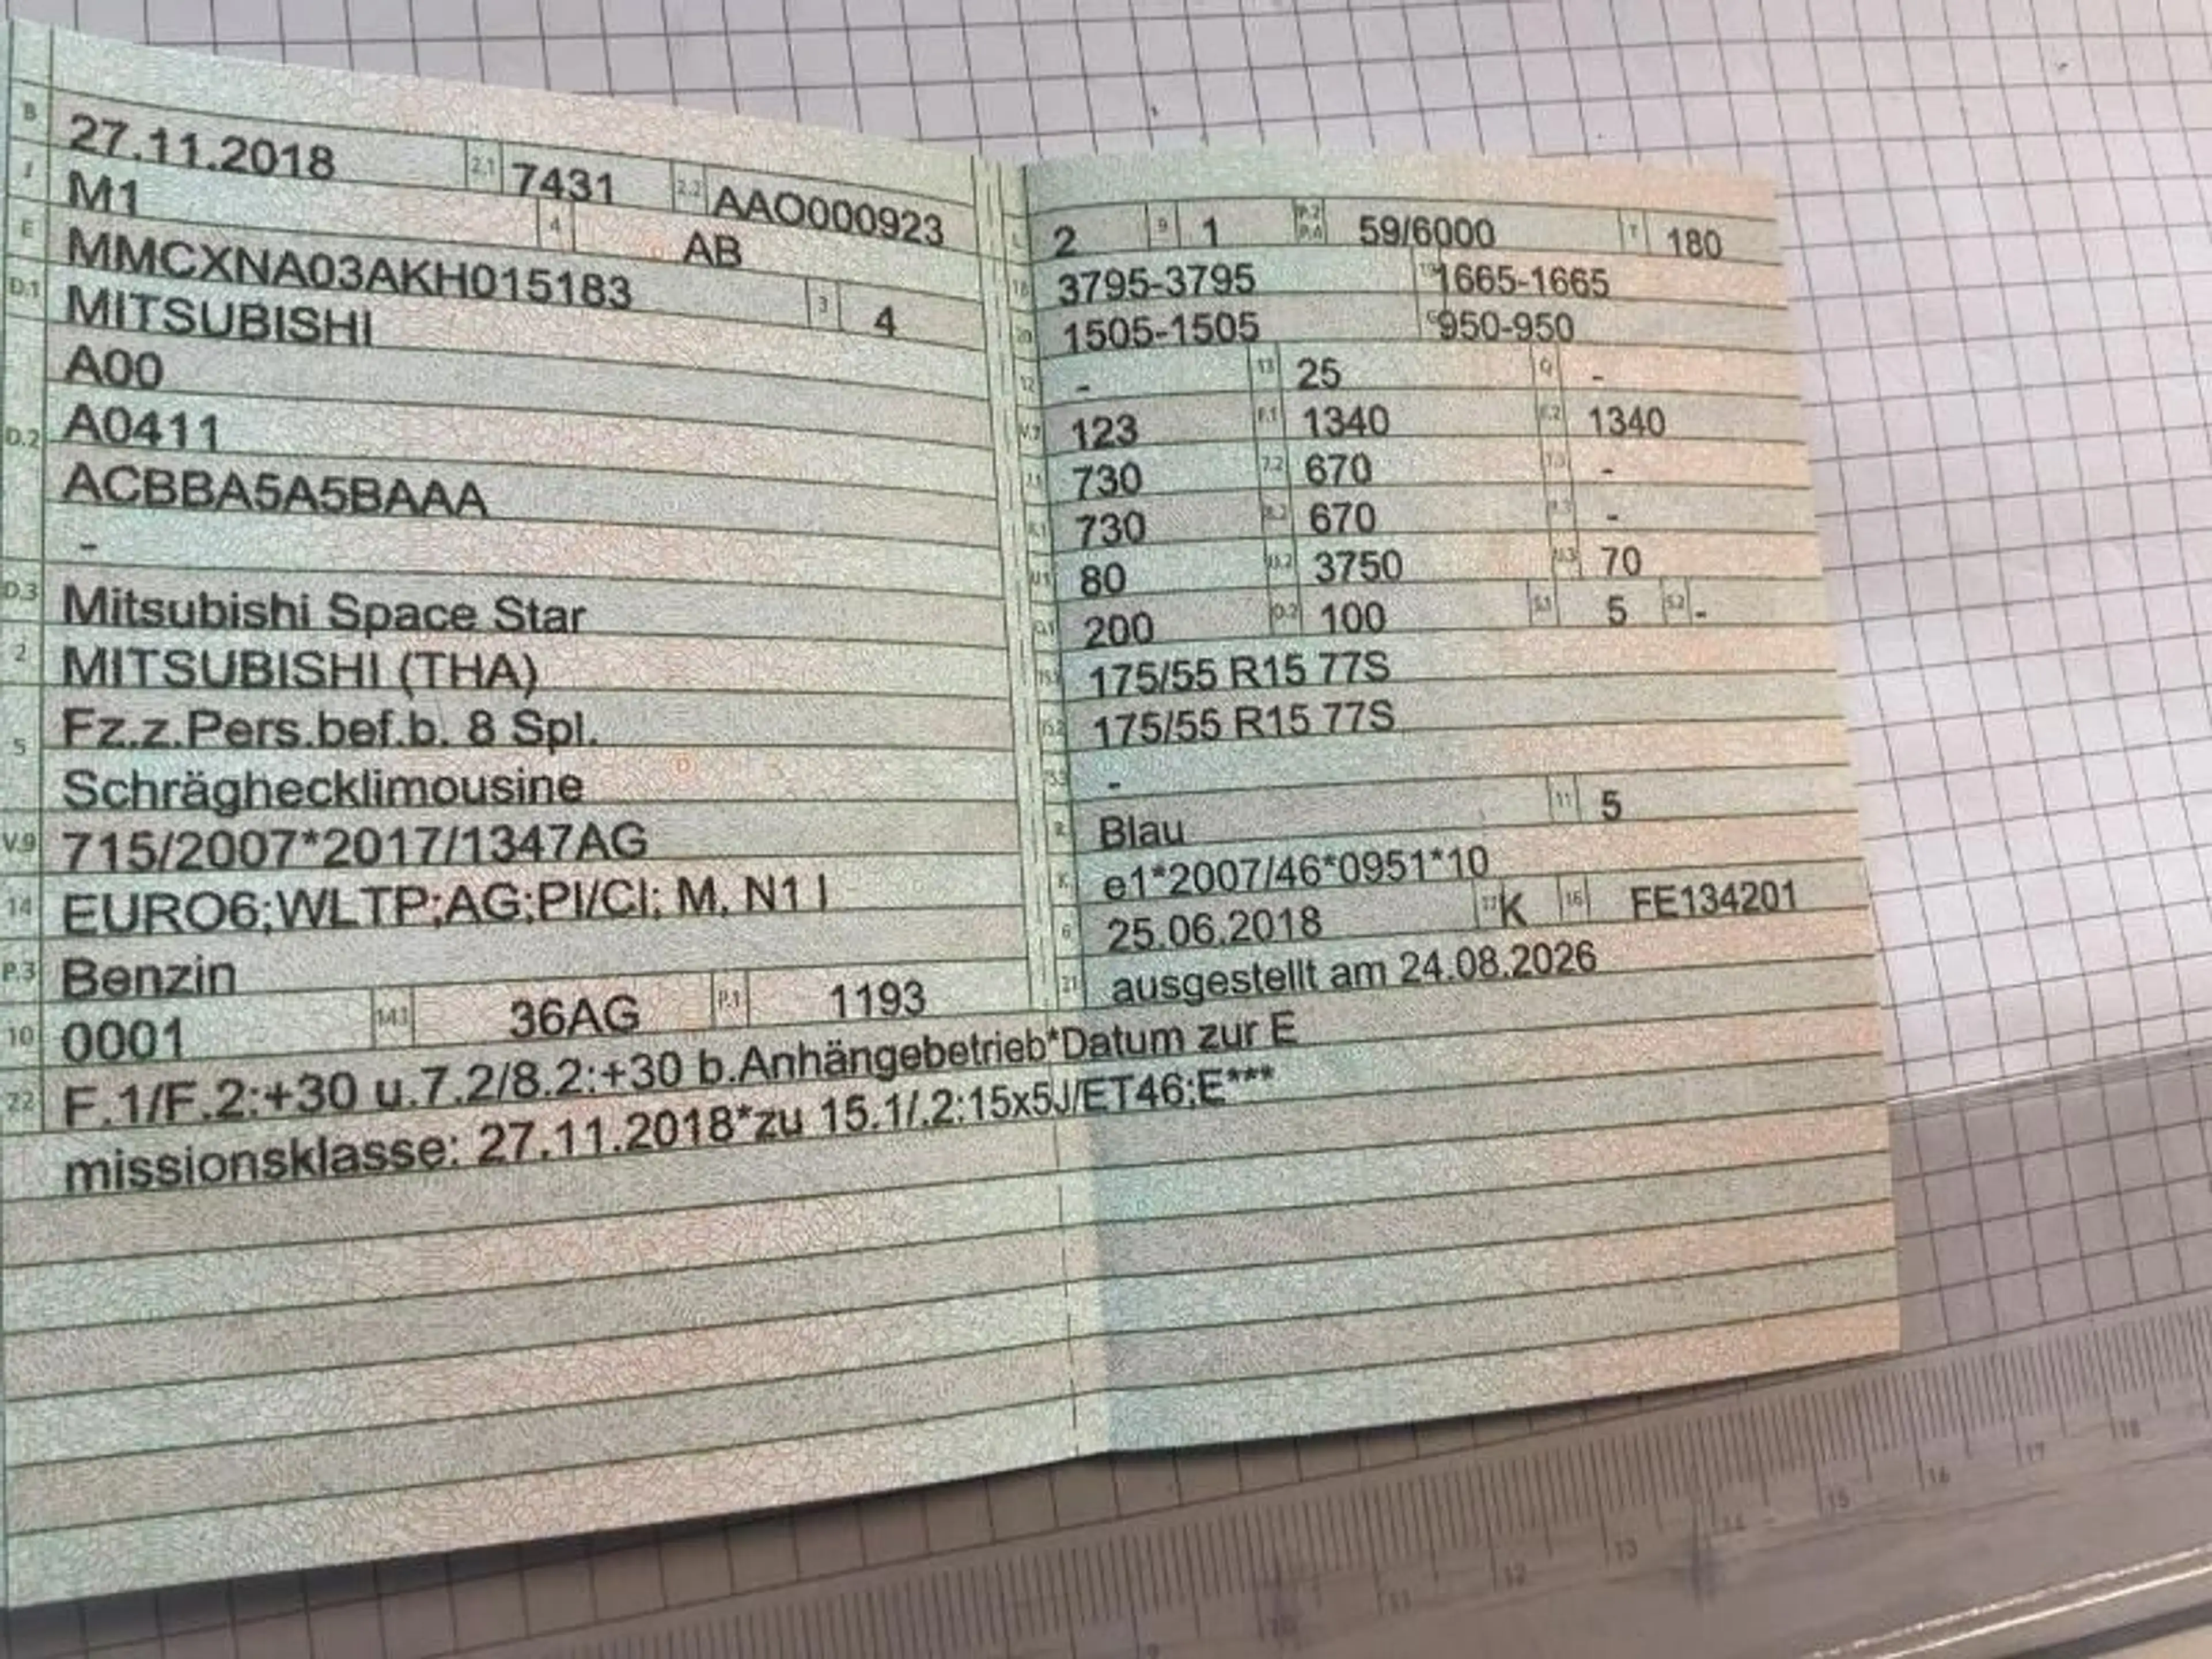 B 27.11.2018 2.1 7431 2.2 AAO000923
J M1 4 AB
E MMCXNA03AKH015183 3 4
D.1 MITSUBISHI
A00
D.2 A0411
ACBBA5A5BAAA
-
D.3 Mitsubishi Space Star
2 MITSUBISHI (THA)
5 Fz.z.Pers.bef.b. 8 Spl.
Schräghecklimousine
V.9 715/2007*2017/1347AG
14 EURO6;WLTP;AG;PI/CI; M, N1 I
P.3 Benzin
10 0001 14.1 36AG P.1 1193
22 F.1/F.2:+30 u.7.2/8.2:+30 b.Anhängebetrieb*Datum zur E
missionsklasse: 27.11.2018*zu 15.1/.2:15x5J/ET46;E***
L 2 9 1 P.2 P.4 59/6000 T 180
18 3795-3795 19 1665-1665
20 1505-1505 G 950-950
12 - 13 25 Q -
V.7 123 F.1 1340 F.2 1340
7.1 730 7.2 670 7.3 -
8.1 730 8.2 670 8.3 -
U.1 80 U.2 3750 U.3 70
O.1 200 O.2 100 S.1 5 S.2 -
15.1 175/55 R15 77S
15.2 175/55 R15 77S
15.3 -
R Blau 11 5
K e1*2007/46*0951*10
6 25.06.2018 17 K 16 FE134201
21 ausgestellt am 24.08.2026
9 10 11 12 13 14 15 16 17 18